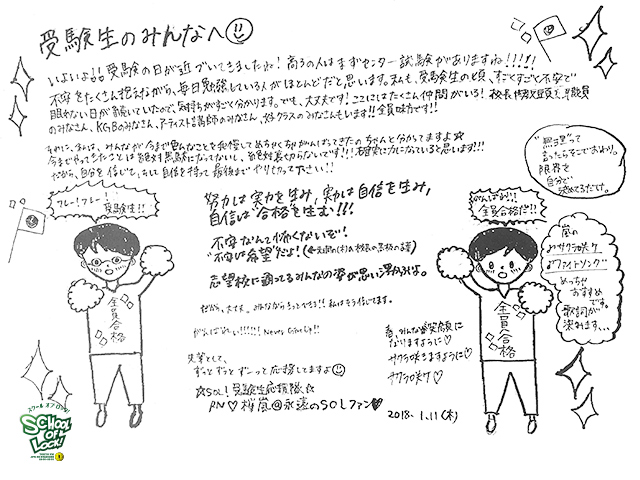 受験生のみんなへ
いよいよ!! 受験の日が近づいてきましたね! 高3の人はまずセンター試験がありますね!!!!!
不安をたくさん抱えながら、毎日勉強している人がほとんどだと思います。私も、受験生の頃、すごくすごく不安で
眠れない日が続いていたので、気持ちがすごく分かります。でも、大丈夫! ここにはたくさん仲間がいる! 校長、教頭
のみなさん、KGBのみなさん、アーティスト講師のみなさん、好クラスのみなさんもいます!! 全員味方です!!
それに、みんなが今まで色んなことを我慢してめちゃくちゃがんばってきたの、ちゃんと分かってますよ☆
今までやってきたことは絶対
だから、自分を信じて、そして自信を持って最後までやりきって下さい!!
フレー!フレー!
受験生!!
努力は実力を生み、実力は自信を生み、
自信は"合格"を生む!!!
不安なんて怖くないぞ!
"不安が希望"だよ!
志望校に通ってるみんなの姿が思い浮かぶよ。
だから、大丈夫。みんななら
がんばれ!!!!!! Never Give Up!!
先輩として、
ずっとずっとずーっと応援してますよ
☆SOL! 受験生応援隊☆
RN♡ 嵐@永遠のSOLファン♥
全員合格
"無理"って
言ったらそこでおわり。
限界を
自分で
決めてるだけ。
がんばれ!!
全員合格だ!!
嵐の
♪サクラ咲ケ
♪ファイトソング
めっちゃ
おすすめ
です。
歌詞が
染みます…
全員合格
春、みんなが笑顔に
なりますように♡
サクラ咲きますように♡
サクラ咲ケ♡
2018.1.11(木)
スクール オブ ロック!
SCHOOL OF LOCK!